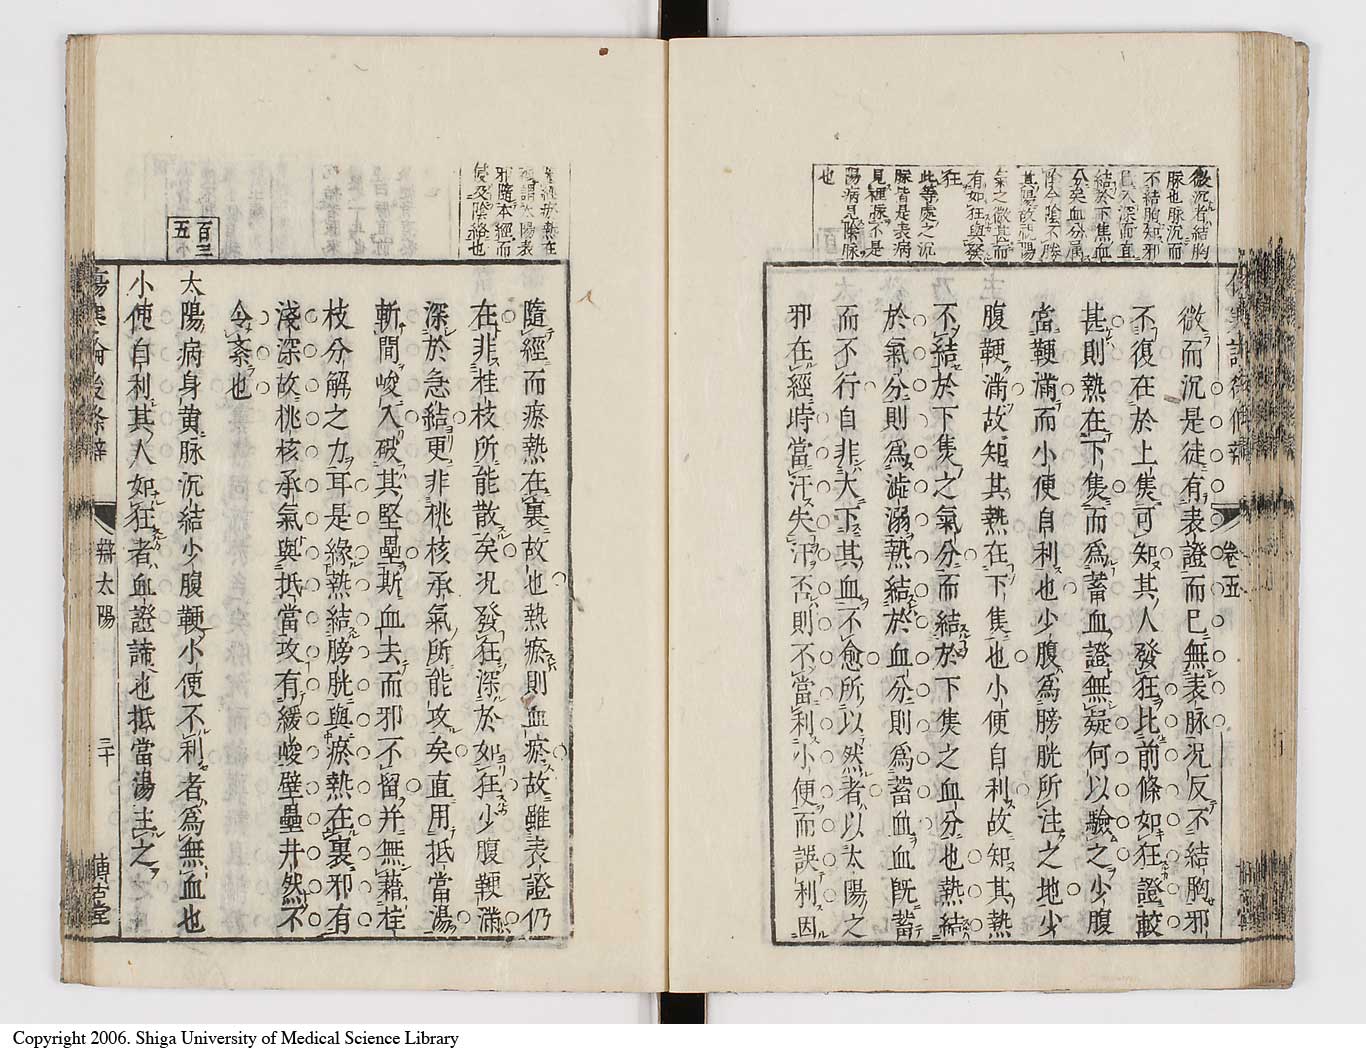 微沉者結胸
脉也脉沉而
不結胸知邪
已入深而直
結於下焦血
分矣血分属
陰今陰不勝
其陽故
氣之微甚而
有如狂與發
狂
此等處之沉
脉皆是表病
見裡脉不是
陽病見陰脉
也
微而沉是徒有表證而已無表脉况反不結胸邪
不復在於上焦可知其人發狂比前條如狂證較
甚則熱在下焦而爲蓄血證無疑何以驗之少腹
當鞕滿而小便自利也少腹爲膀胱所注之地少
腹鞕滿故知其熱在下焦也小便自利故知其熱
不結於下焦之氣分而結於下焦之血分也熱結
於氣分則爲澁溺熱結於血分則爲蓄血血既蓄
而不行自非大下其血不愈所以然者以太陽之
邪在經時當汗失汗否則不當利小便而誤利因
卷五
經瘀熱在
謂太陽表
邪隨本經而
侵及陰絡也
隨經而瘀熱在裏故也熱瘀則血瘀故雖表證仍
在非桂枝所能散矣况發狂深於如狂少腹鞕滿
深於急結更非桃核承氣所能攻矣直用抵當湯
斬間峻入破其堅壘斯血去而邪不留并無藉桂
枝分解之力耳是緣熱結膀胱與瘀熱在裏邪有
淺深故桃核承氣與抵當攻有緩峻壁壘井然不
令紊也
百三
五
太陽病身黄脉沉結少腹鞕小便不利者爲無血也
小使自利其人如狂者血證諦也抵當湯主之
傷寒論後條辨
辨太陽
三十
博古堂
Copyright 2006. Shiga University of Medical Science Library